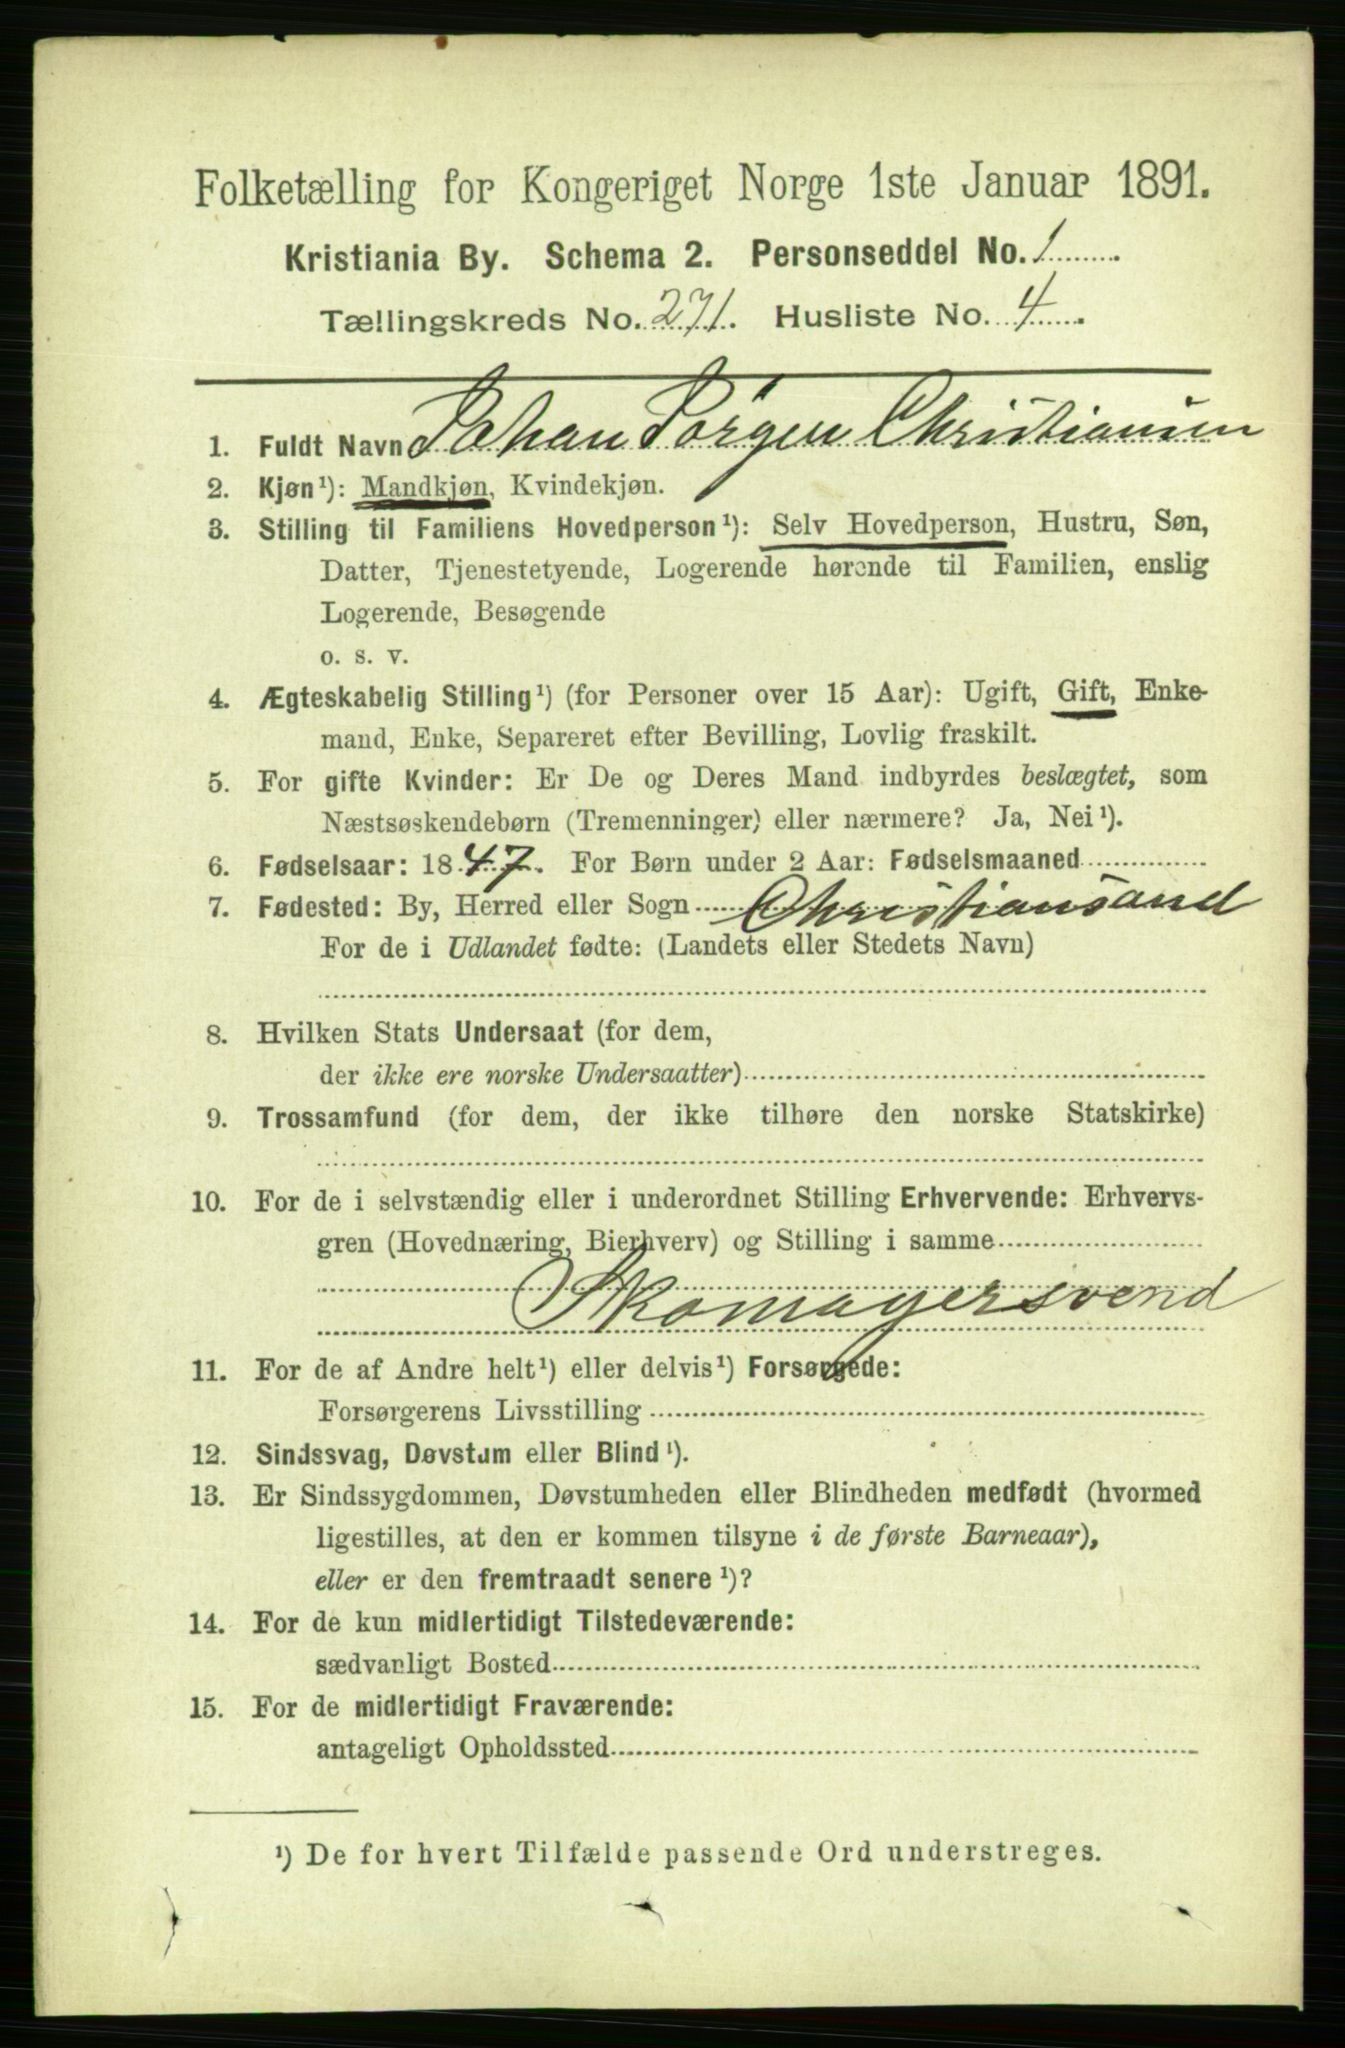 Folketælling for Kongeriget Norge 1ste Januar 1891.
Kristiania By. Schema 2. Personseddel No. 1
Tællingskreds No. 271. Husliste No. 4
1. Fuldt Navn Johan Jörgen Christiansen
2. Kjøn¹): Mandkjøn, Kvindekjøn.
3. Stilling til Familiens Hovedperson¹): Selv Hovedperson, Hustru, Søn,
Datter, Tjenestetyende, Logerende hørende til Familien, enslig
Logerende, Besøgende
o. s. v.
4. Ægteskabelig Stilling¹) (for Personer over 15 Aar): Ugift, Gift, Enke-
mand, Enke, Separeret efter Bevilling, Lovlig fraskilt.
5. For gifte Kvinder: Er De og Deres Mand indbyrdes beslægtet, som
Næstsøskendebørn (Tremenninger) eller nærmere? Ja, Nei¹).
6. Fødselsaar: 1847. For Børn under 2 Aar: Fødselsmaaned
7. Fødested: By, Herred eller Sogn Christiansand
For de i Udlandet fødte: (Landets eller Stedets Navn)
8. Hvilken Stats Undersaat (for dem,
der ikke ere norske Undersaatter)
9. Trossamfund (for dem, der ikke tilhøre den norske Statskirke)
10. For de i selvstændig eller i underordnet Stilling Erhvervende: Erhvervs-
gren (Hovednæring, Bierhverv) og Stilling i samme
Skomagersvend
11. For de af Andre helt¹) eller delvis¹) Forsørgede:
Forsørgerens Livsstilling
12. Sindssvag, Døvstum eller Blind¹).
13. Er Sindssygdommen, Døvstumheden eller Blindheden medfødt (hvormed
ligestilles, at den er kommen tilsyne i de første Barneaar),
eller er den fremtraadt senere¹)?
14. For de kun midlertidigt Tilstedeværende:
sædvanligt Bosted
15. For de midlertidigt Fraværende:
antageligt Opholdssted
¹) De for hvert Tilfælde passende Ord understreges.